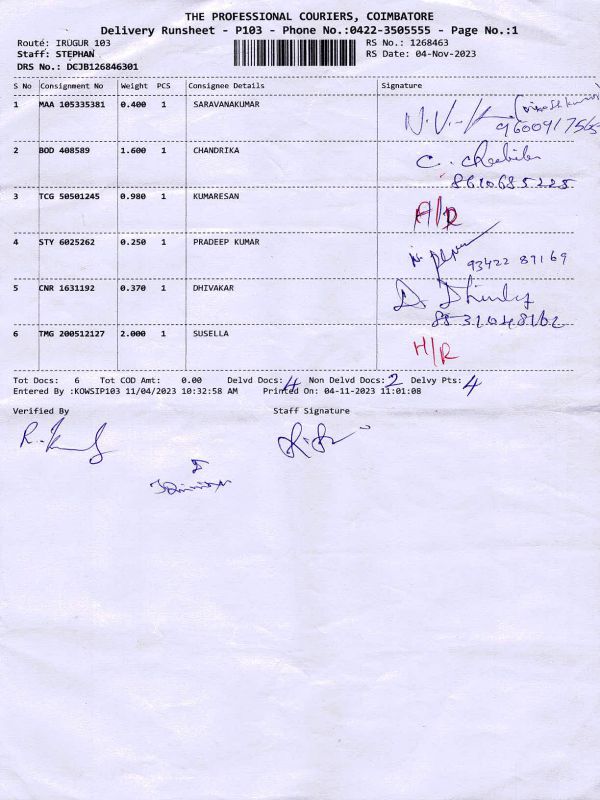 THE PROFESSIONAL COURIERS, COIMBATORE
Delivery Runsheet - P103 - Phone No.:0422-3505555 - Page No.:1
Route: IRUGUR 103 RS No.: 1268463
Staff: STEPHAN RS Date: 04-Nov-2023
DRS No.: DCJB126846301
S No Consignment No Weight PCS Consignee Details Signature
1 MAA 105335381 0.400 1 SARAVANAKUMAR
2 BOD 408589 1.600 1 CHANDRIKA
8610685225
3 TCG 50501245 0.980 1 KUMARESAN A/R
4 STY 6025262 0.250 1 PRADEEP KUMAR
93422 89169
5 CNR 1631192 0.370 1 DHIVAKAR
6 TMG 200512127 2.000 1 SUSELLA H/R
Tot Docs: 6 Tot COD Amt: 0.00 Delvd Docs: 4 Non Delvd Docs: 2 Delvy Pts: 4
Entered By :KOWSIP103 11/04/2023 10:32:58 AM Printed On: 04-11-2023 11:01:08
Verified By Staff Signature